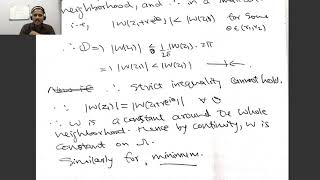 neighborhood, and ∴ in a
i.e, |W(z₁+re^iθ)| < |W(z₁)| for Some
θ∈(r₁,r₂)
∴ ①⇒ |W(z₁)| ≤ 1/2π |W(z₁)|. 2π
⇒ |W(z₁)| < |W(z₁)|
∴ Strict inequality cannot hold.
∴ |W(z₁)| = |W(z₁+re^iθ)| ∀ θ
∴ W is a constant around the whole
neighborhood. Hence by continuity, W is
constant on Ω.
Similarly for minimum.